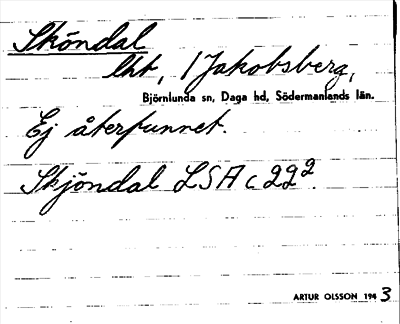 Sköndal
lht, / Jakobsberg,
Björnlunda sn, Daga hd, Södermanlands län.
Ej återfunnet.
Skjöndal LSA c 22².
ARTUR OLSSON 1943